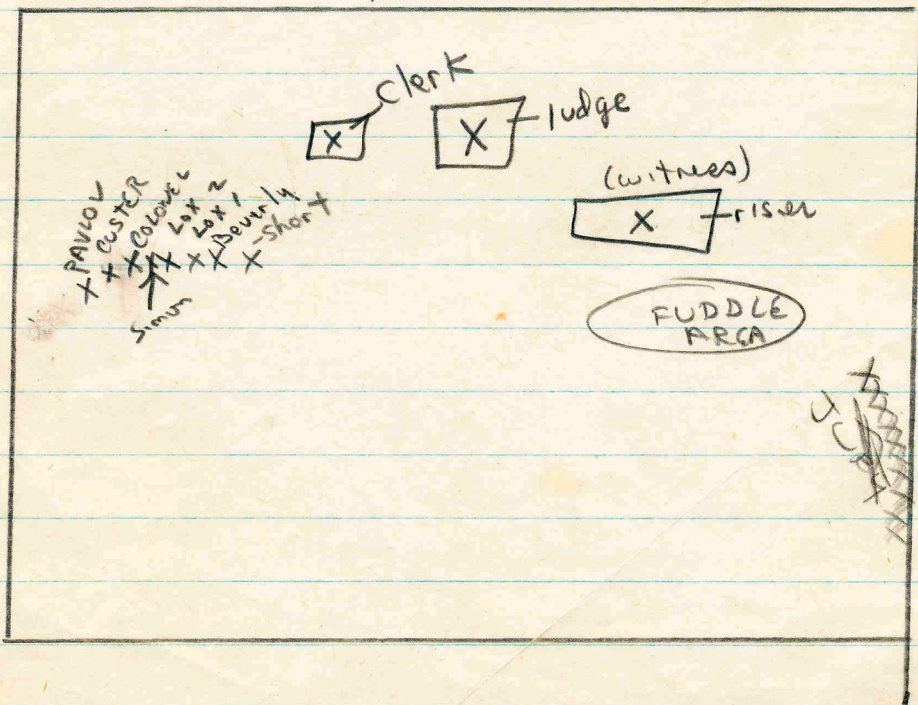 Clerk
X
X
Judge
(witness)
X
riser
PAVLOV
CUSTER
COLONEL
LOX 2
LOX 1
Beverly
short
X X X X X X X
Simon
FUDDLE
AREA
JURY
XXXXXXXXXX